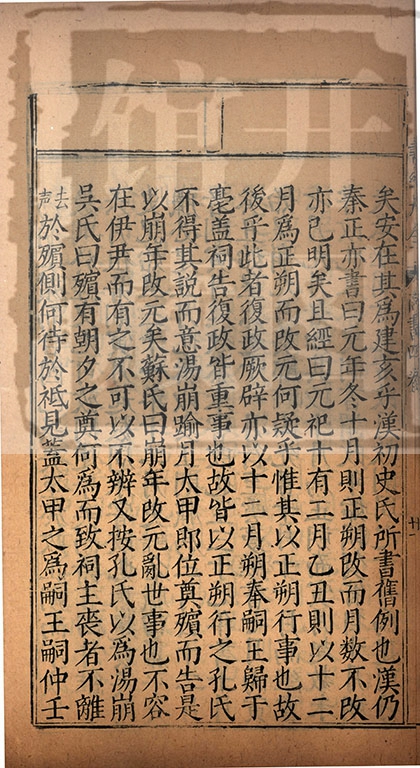 矣安在其為建亥乎漢初史氏所書舊例也漢仍
秦正亦書曰元年冬十月則正朔改而月數不改
亦已明矣且經曰元祀十有二月乙丑則以十二
月為正朔而改元何疑乎惟其以正朔行事也故
後乎此者復政厥辟亦以十二月朔奉嗣王歸于
亳蓋祠告復政皆重事也故皆以正朔行之孔氏
不得其説而意湯崩踰月太甲即位奠殯而告是
以崩年改元矣蘇氏曰崩年改元亂世事也不容
在伊尹而有之不可以不辨又按孔氏以為湯崩
吳氏曰殯有朝夕之奠何為而致祠主喪者不離
去声於殯側何待於祗見蓋太甲之為嗣王嗣仲壬